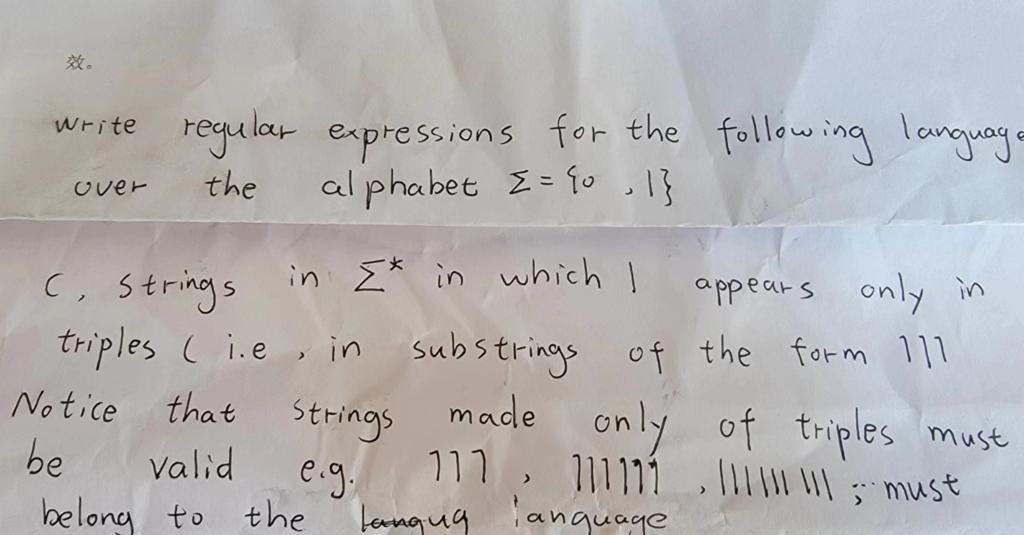 效。
write regular expressions for the following language
over the alphabet Σ = {0 , 1}
C , strings in Σ* in which 1 appears only in
triples ( i.e , in substrings of the form 111
Notice that strings made only of triples must
be valid e.g. 111 , 111111 , 111111111 ;... must
belong to the langug language